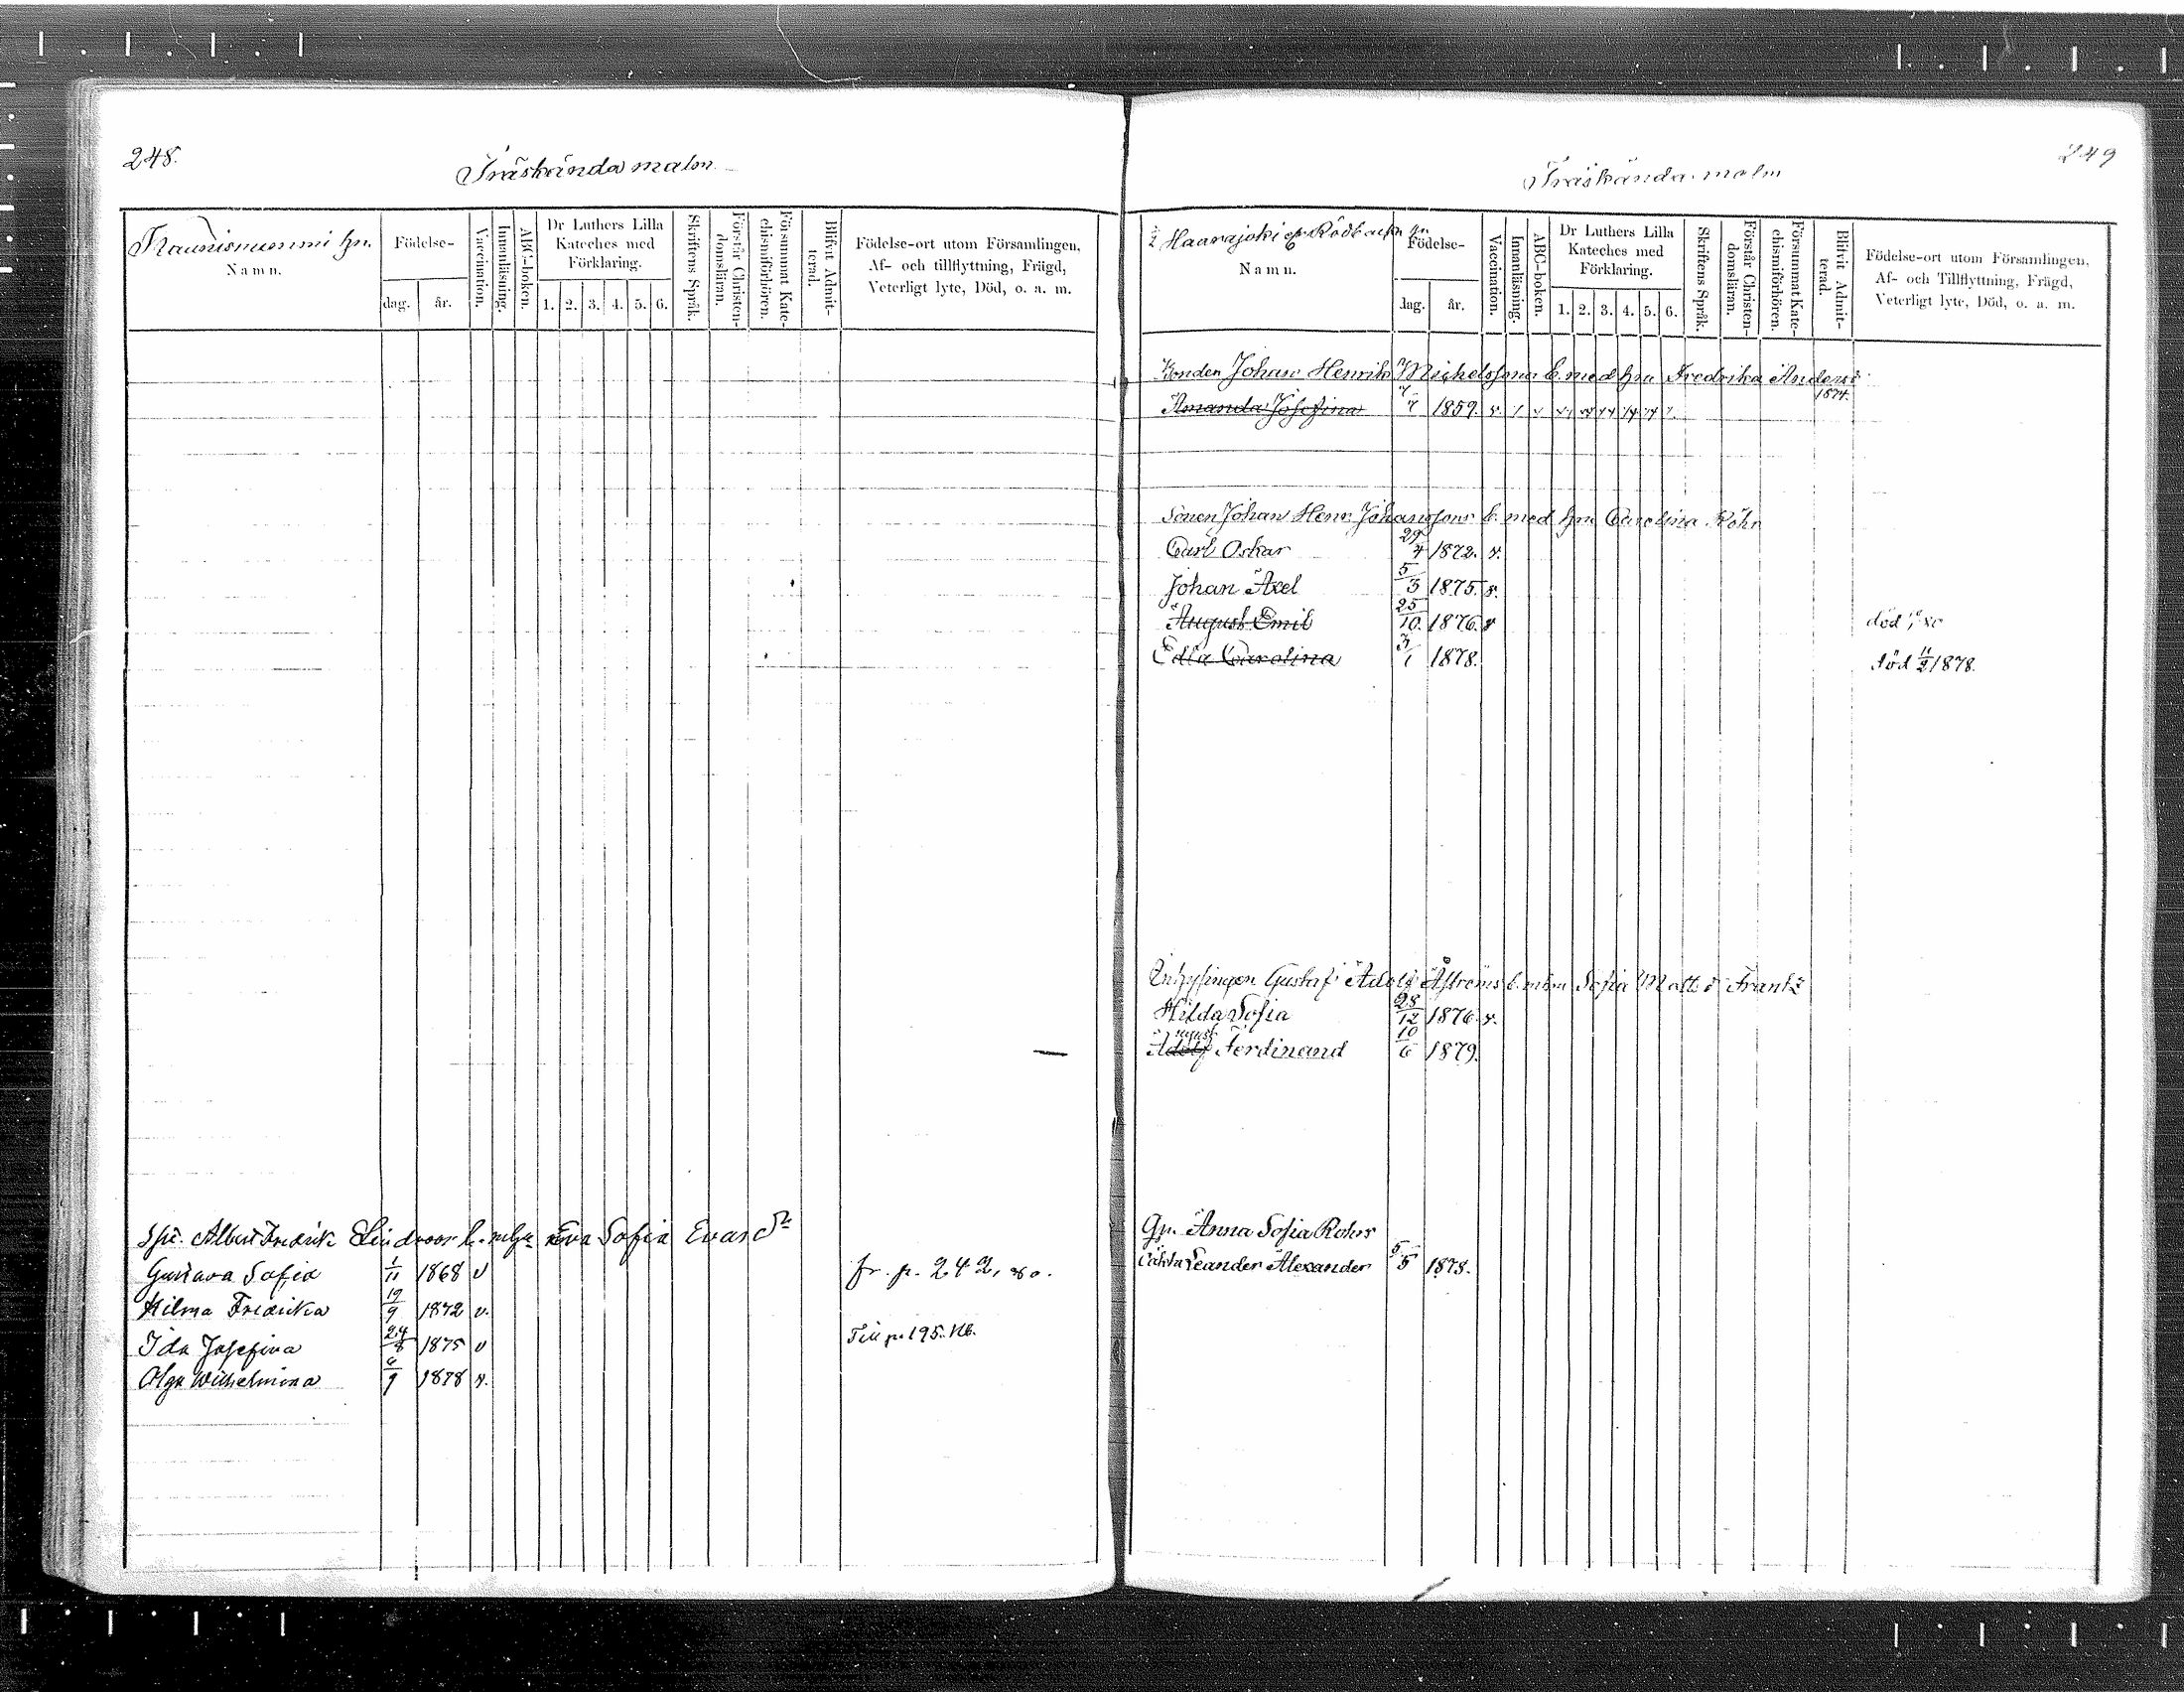 248.
Träskända malm.
hn.
Namn.
Födelse-
dag. år.
Vaccination.
Innanläsning.
ABC-boken.
Dr Luthers Lilla Kateches med Förklaring.
1. 2. 3. 4. 5. 6.
Skriftens Språk.
Förstår Christen-domsläran.
Försummat Kate-chismiförhören.
Blifvit Admit-terad.
Födelse-ort utom Församlingen,
Af- och tillflyttning, Frägd,
Veterligt lyte, Död, o. a. m.
Albert Fredrik Lindroos b. m hu Eva Sofia Evas dr
Gustava Sofia 1/11 1868 v fr. p. 242, 80.
Hilma Fredrika 19/9 1872 v.
Ida Josefina 24/8 1875 v Till p. 195. Nb.
Olga Wilhelmina 6/9 1878 v.
249
Träskända malm
1/2 Haarajoki el. Rödback hn
Namn.
Födelse-
dag. år.
Vaccination.
Innanläsning.
ABC-boken.
Dr Luthers Lilla Kateches med Förklaring.
1. 2. 3. 4. 5. 6.
Skriftens Språk.
Förstår Christen-domsläran.
Försummat Kate-chismiförhören.
Blifvit Admit-terad.
Födelse-ort utom Församlingen,
Af- och Tillflyttning, Frägd,
Veterligt lyte, Död, o. a. m.
Bonden Johan Henrik Michelssons b. med hu Fredrika Anders
Amanda Josefina 1859. 1874.
Sonen Johan Henr. Johanssons b. med hu Carolina Röhr
Carl Oskar 29/4 1872. v.
Johan Axel 5/3 1875. v.
August Emil 25/10. 1876. v död
Edla Carolina 3/1 1878. död 11/2 1878.
Inhysingen Gustaf Adolf Åströms b. m hu Sofia Matts Frants
Hilda Sofia 28/12 1876. v.
Adolf August Ferdinand 10/6 1879.
Gp. Anna Sofia Rohrs
oäkta Leander Alexander 5/5 1878.